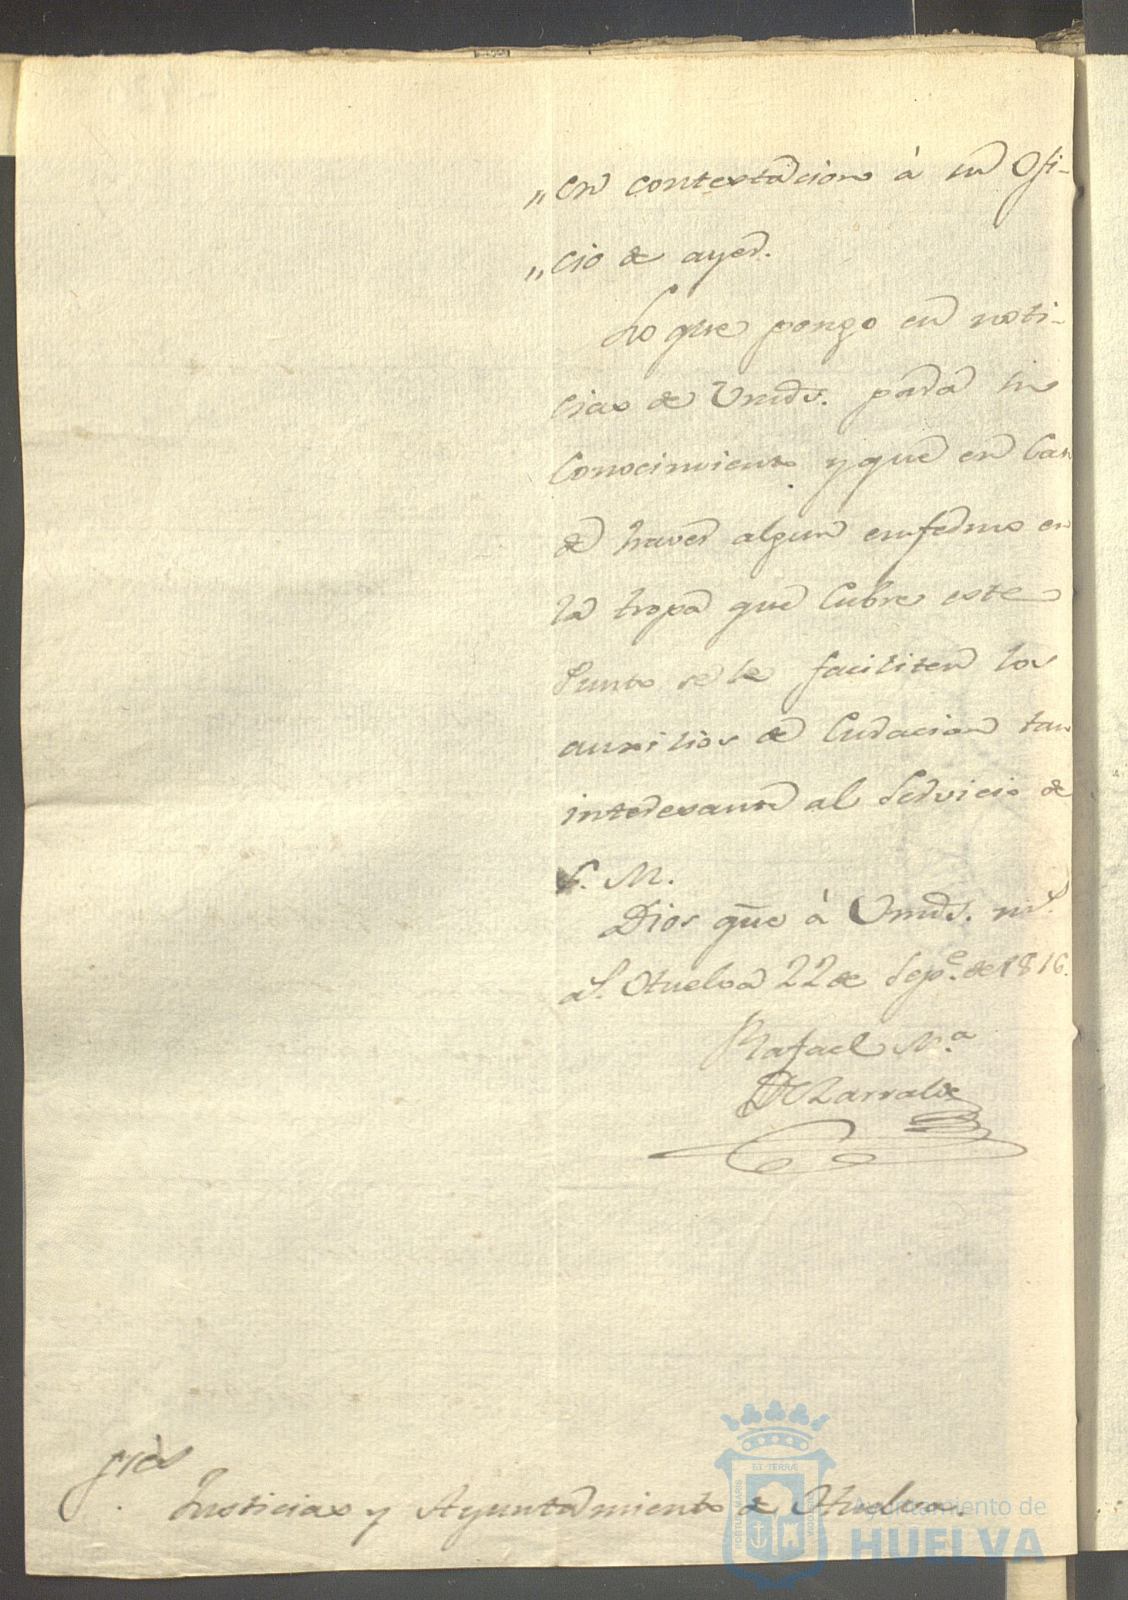 „en contextacion à su Ofi-
„cio de ayer.
Lo que pongo en noti-
cias de Vmds. para su
Conocimiento y que en Cas
de haver algun enfermo en
la tropa que Cubre este
Punto se le faciliten los
auxilios de Curacion tan
interesante al Servicio de
S. M.
Dios gue à Vmds. ms.
as. Huelva 22 de Sepe. de 1816.
Rafael Ma.
Justicia y Ayuntamiento de Huelva.
Ayuntamiento de
HUELVA